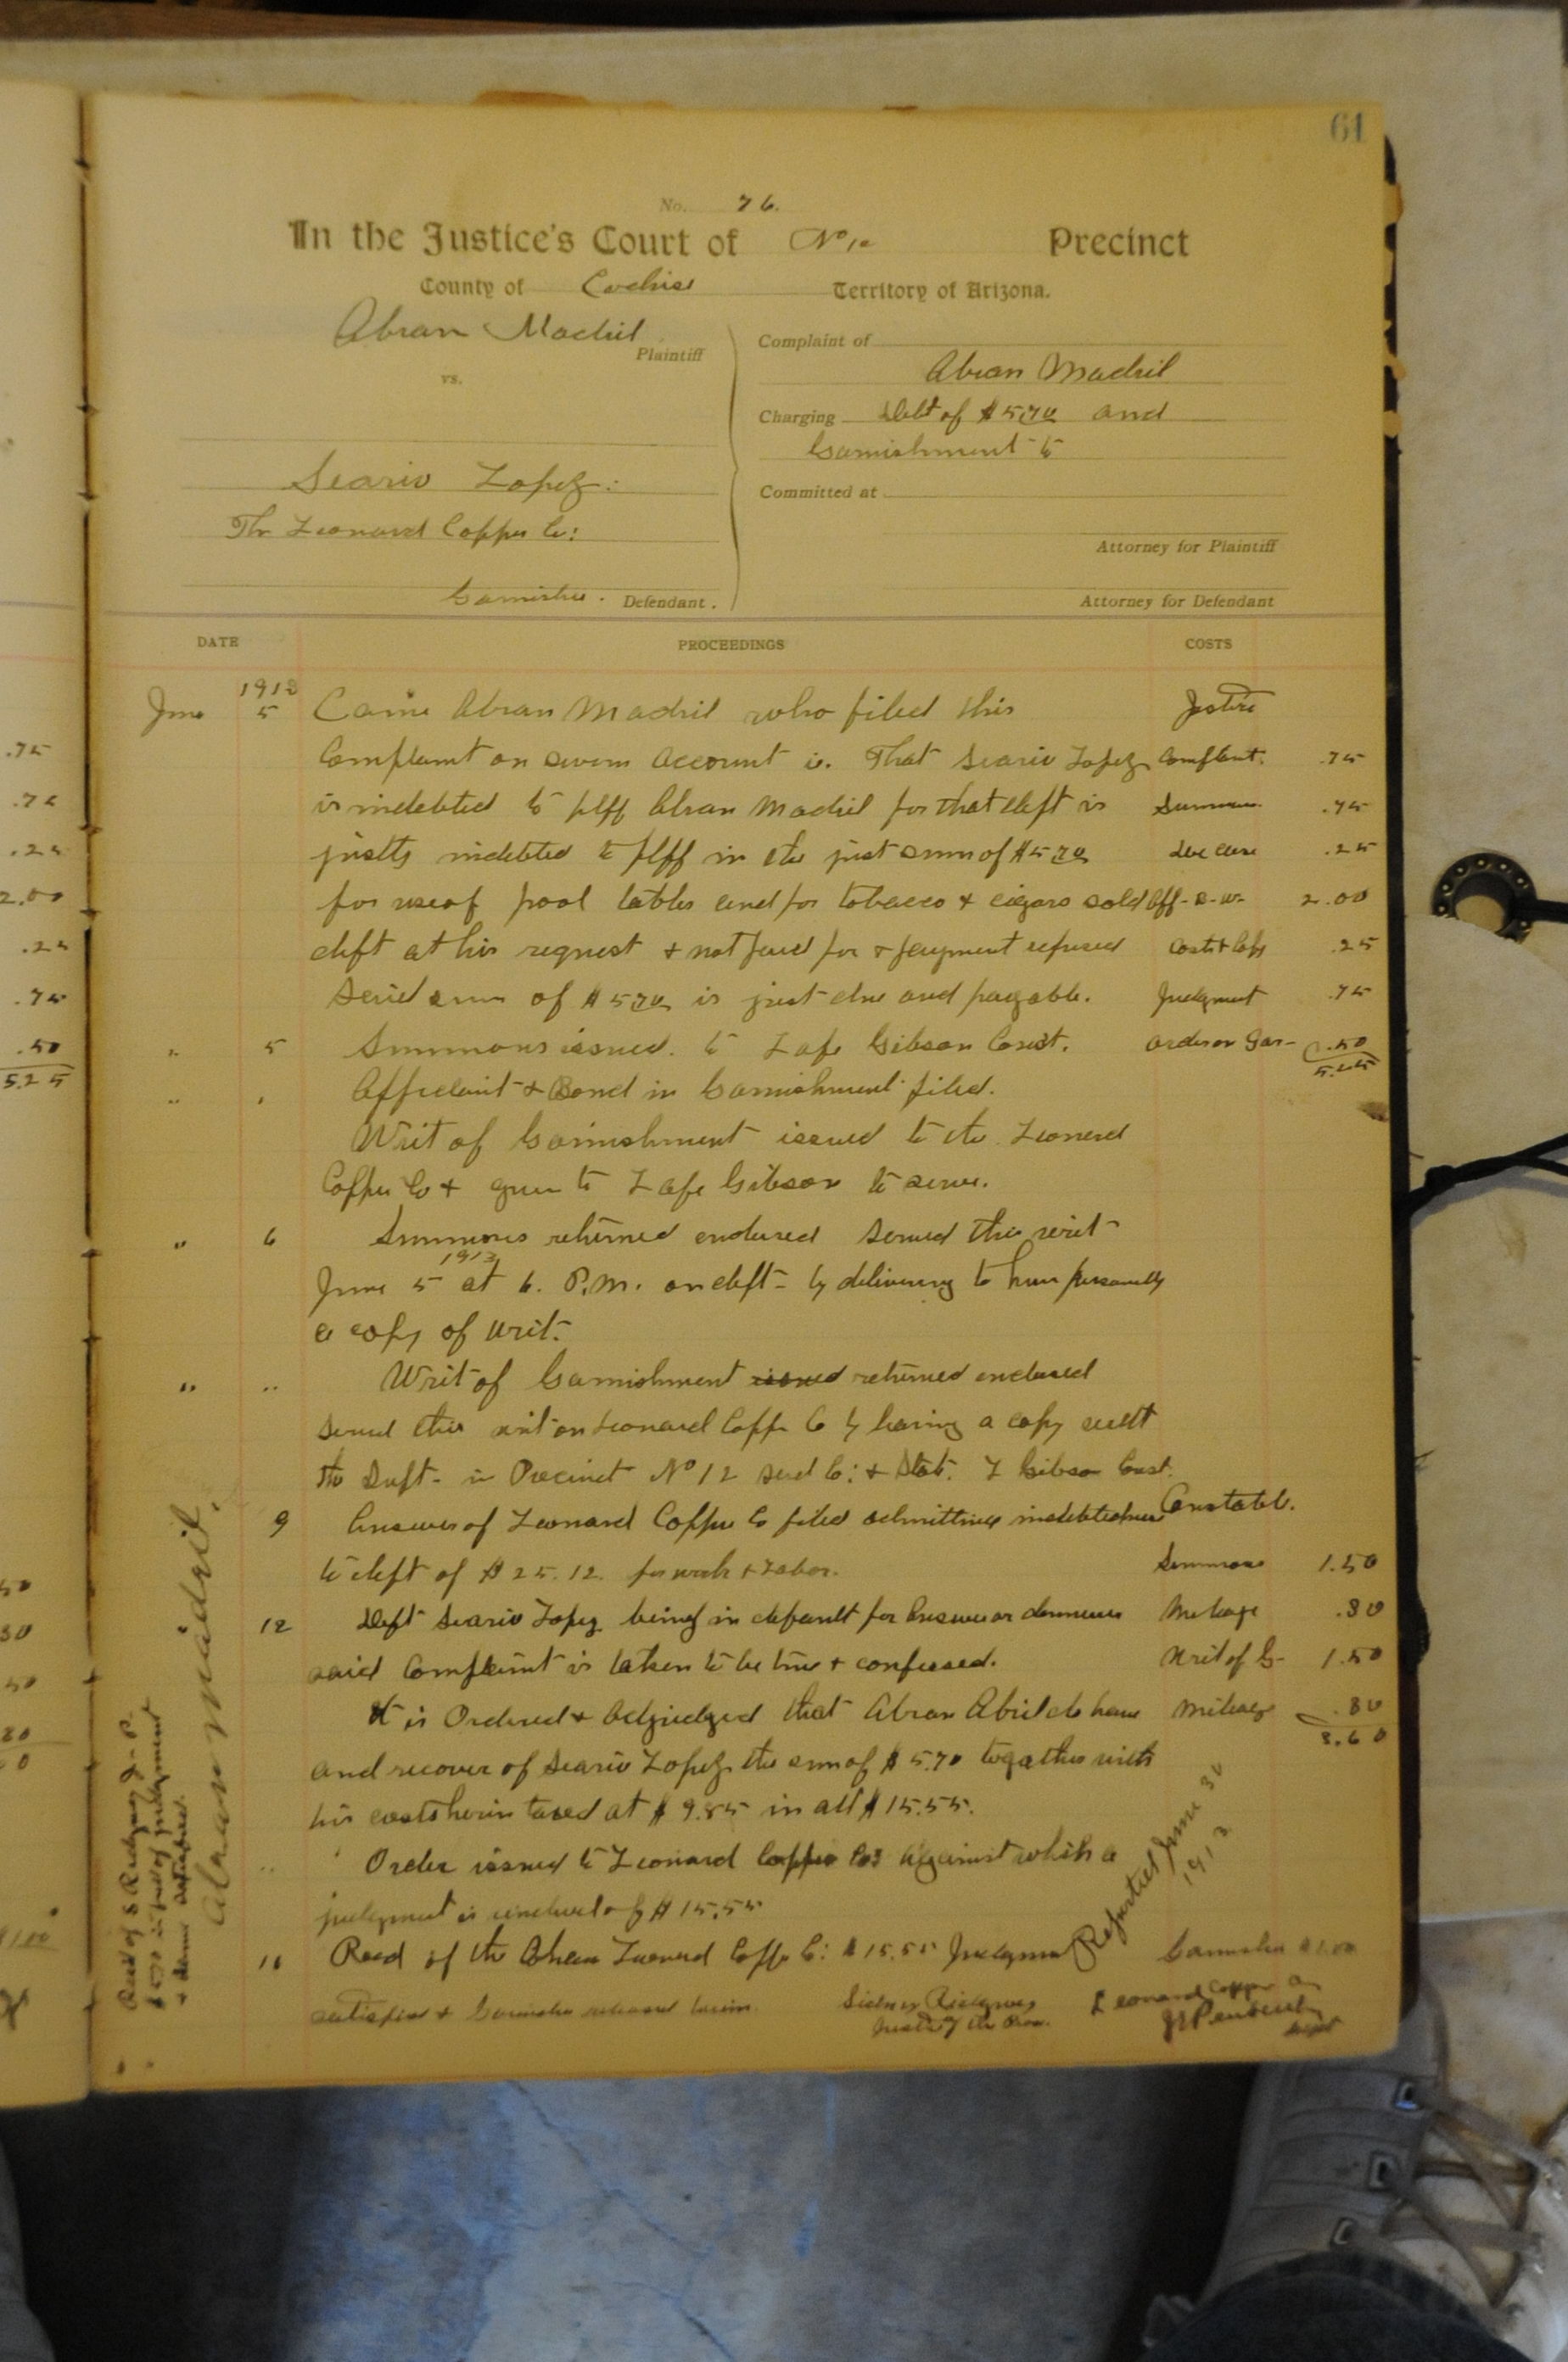 61
No. 76.
In the Justice's Court of No 12 Precinct
County of Cochise Territory of Arizona.
Abran Madril
Plaintiff
vs.
Seario Lopez:
The Leonard Copper Co:
Garnishee. Defendant.
Complaint of
Abran Madril
Charging Debt of $5.70 and
Garnishment to
Committed at
Attorney for Plaintiff
Attorney for Defendant
DATE PROCEEDINGS COSTS
1913
June 5 Came Abran Madril who filed this Justice
Complaint on sworn account is. That Seario Lopez Complaint. .75
is indebted to plff Abran Madril for that deft is Summons .75
justly indebted to plff in the just sum of $5.70 Doc Case .25
for use of pool tables and for tobacco & cigars sold Aff-B-W- 2.00
deft at his request & not paid for & payment refused Costs & Copy .25
Said sum of $5.70 is just due and payable. Judgment .75
" 5 Summons issued. to Lafe Gibson Const. Order on Gar- .50
5.25
" " Affidavit & Bond in Garnishment filed.
Writ of Garnishment issued to the Leonard
Copper Co & given to Lafe Gibson to serve.
" 6 Summons returned endorsed Served this writ
June 5 1913 at 6. P.M. on deft- by delivering to him personally
a copy of writ.
" " Writ of Garnishment issued returned endorsed
served this writ on Leonard Copper Co by leaving a copy with
the Supt- in Precinct No 12 said Co: & State. L Gibson Const.
9 Answer of Leonard Copper Co filed admitting indebtedness Constable.
to deft of $25.12. for work & Labor. Summons 1.50
12 Deft Seario Lopez being in default for Answer or demurrer Mileage .80
said Complaint is taken to be true & confessed. Writ of G- 1.50
It is Ordered & Adjudged that Abran Abril do have Mileage .80
and recover of Seario Lopez the sum of $5.70 together with
his costs herin taxed at $9.85 in all $15.55.
" Order issued to Leonard Copper Co: against which a
judgment is rendered of $15.55
Reported June 30
1913
Recd of the Leonard Copper Co: $15.55 Judgment Garnishee $1.00
satisfied & Garnishee released herein.
Sidney Ridgway
Justice of the Peace.
Leonard Copper Co
Supt
Recd of S Ridgway J-P-
$5.70 in full of judgment
& same satisfied.
Abraan Madril.
.75
.25
2.00
.25
.75
.50
5.25